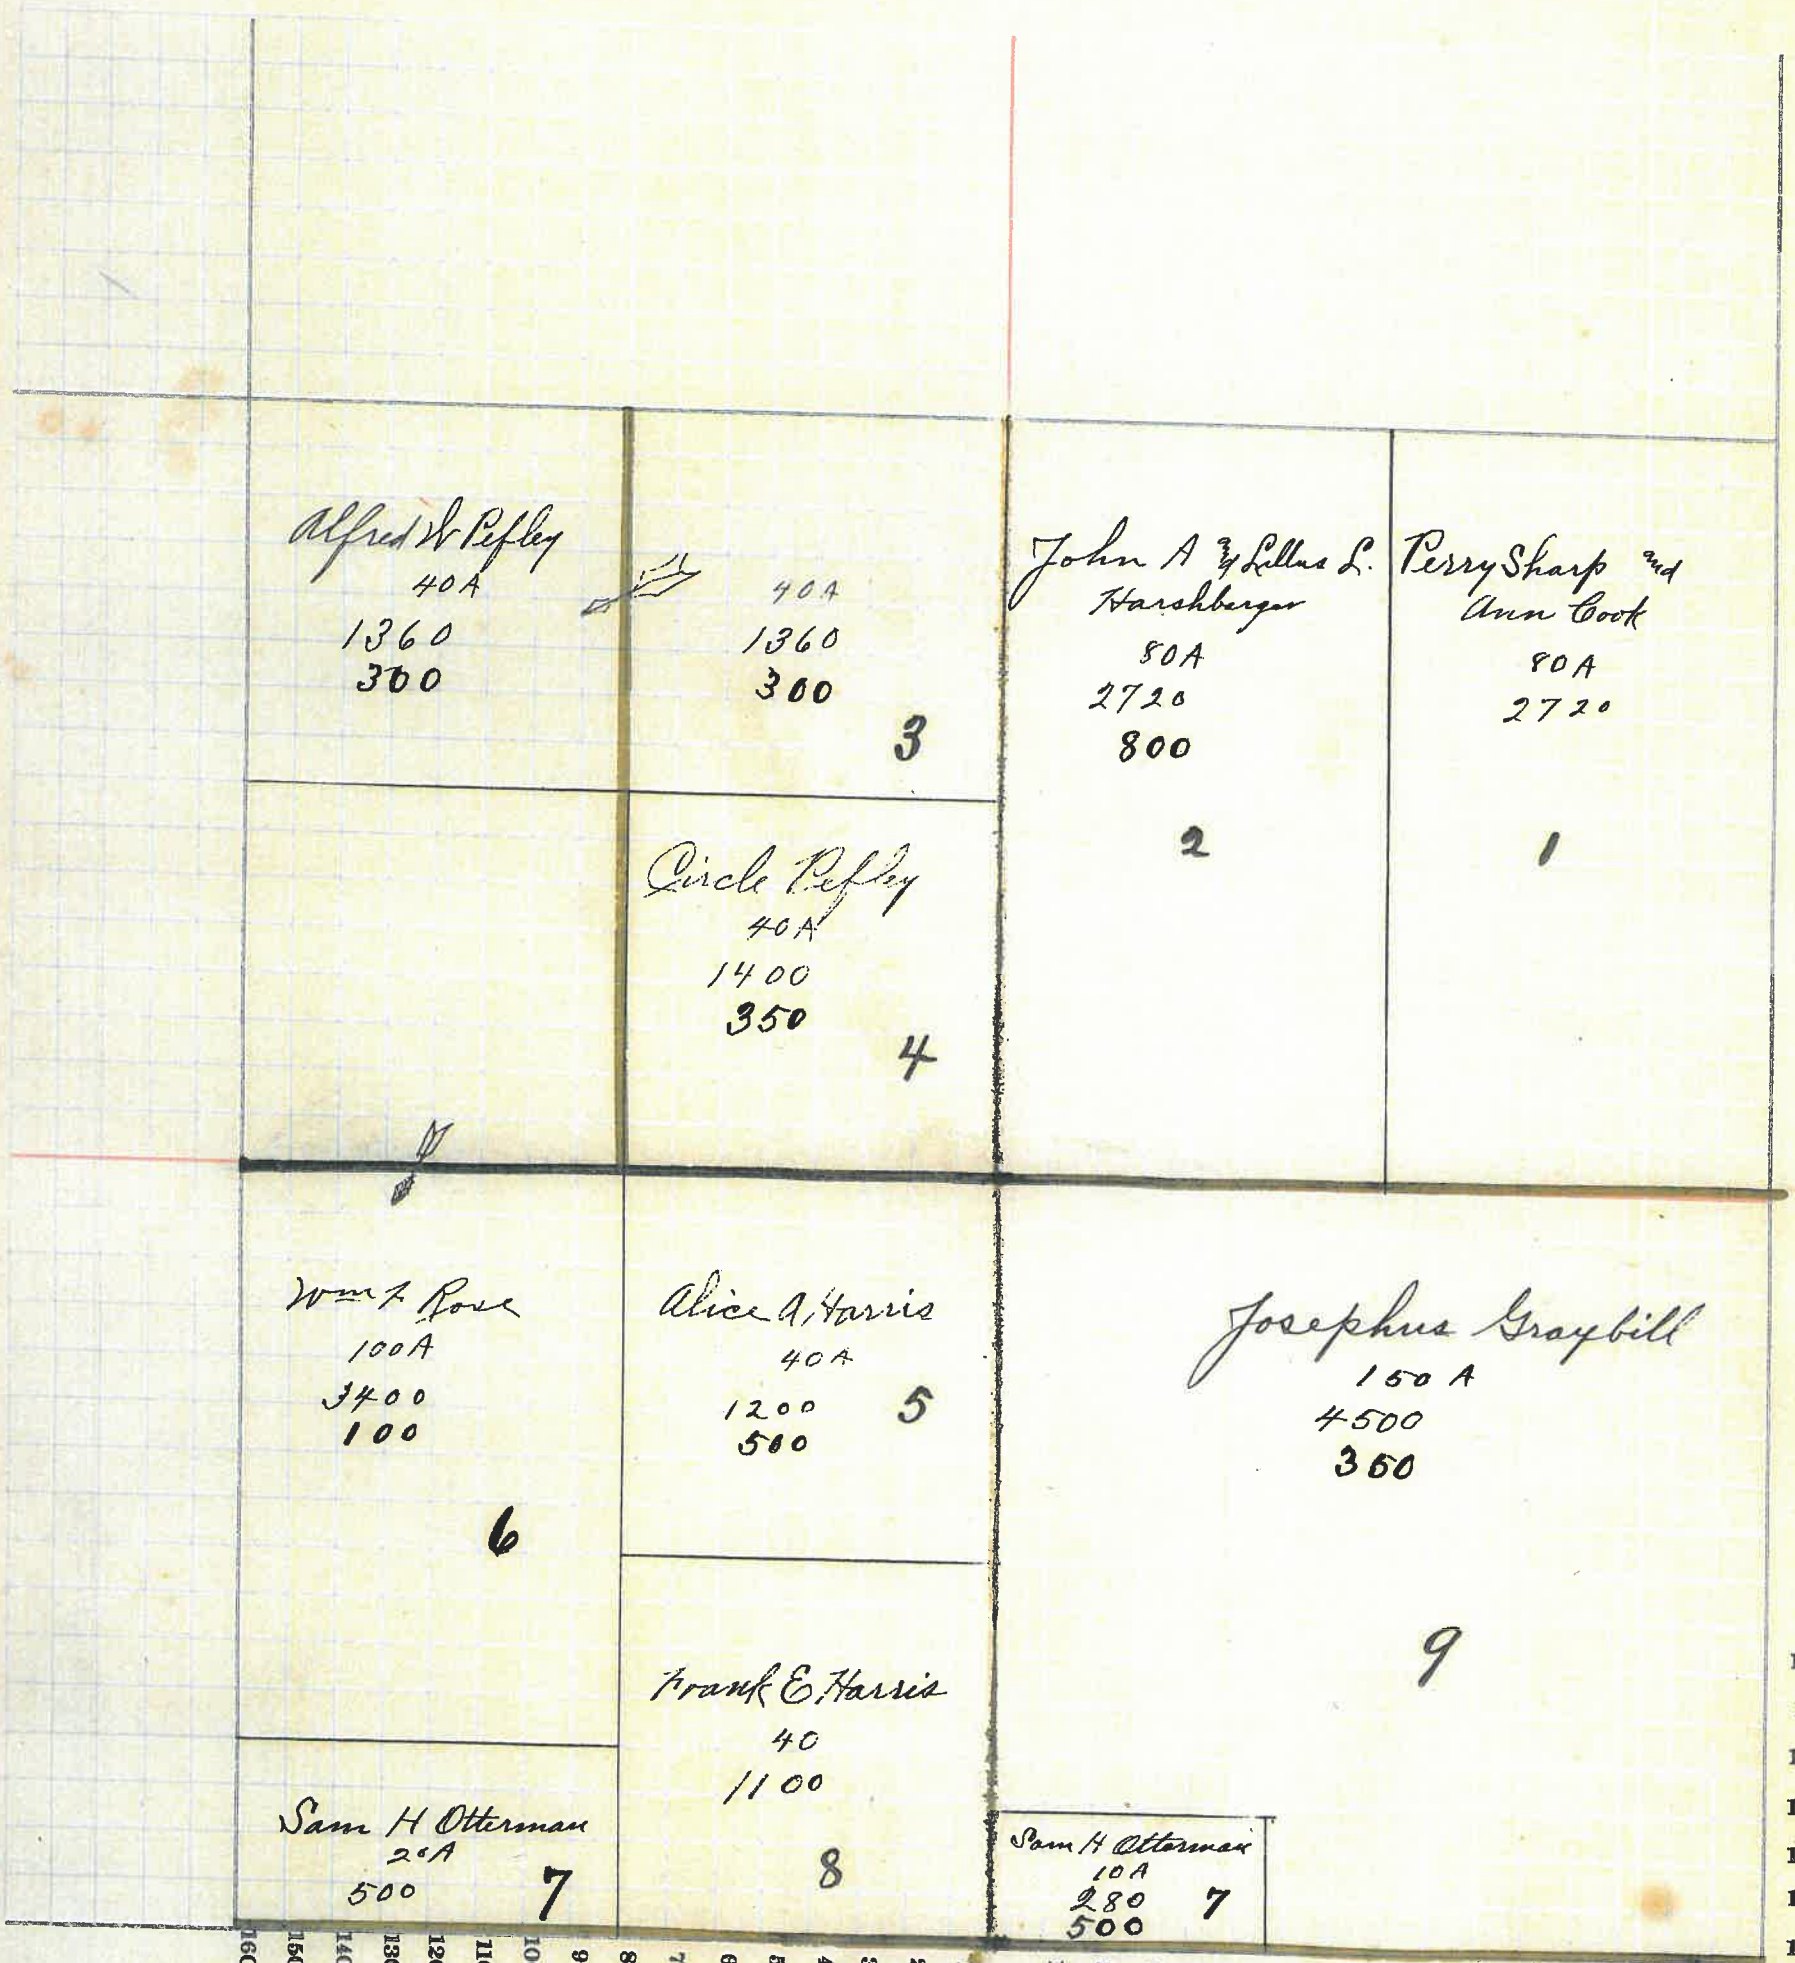 Alfred W Pefley
40A
1360
300
40A
1360
300
3
John A and Lillus L.
Harshbarger
80A
2720
800
2
Perry Sharp and
Ann Cook
80A
2720
1
Circle Pefley
40A
1400
350
4
Wm F Rose
100A
3400
100
6
Alice A. Harris
40A
1200
500
5
Josephus Graybill
150 A
4500
350
9
Frank E. Harris
40
1100
8
Sam H Otterman
20A
500
7
Sam H Otterman
10A
280
500
7